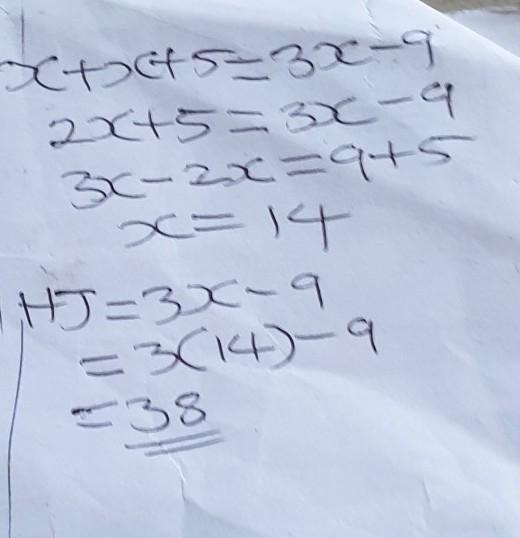 x+x+5=3x-9
2x+5=3x-9
3x-2x=9+5
x=14
HJ=3x-9
=3(14)-9
=38